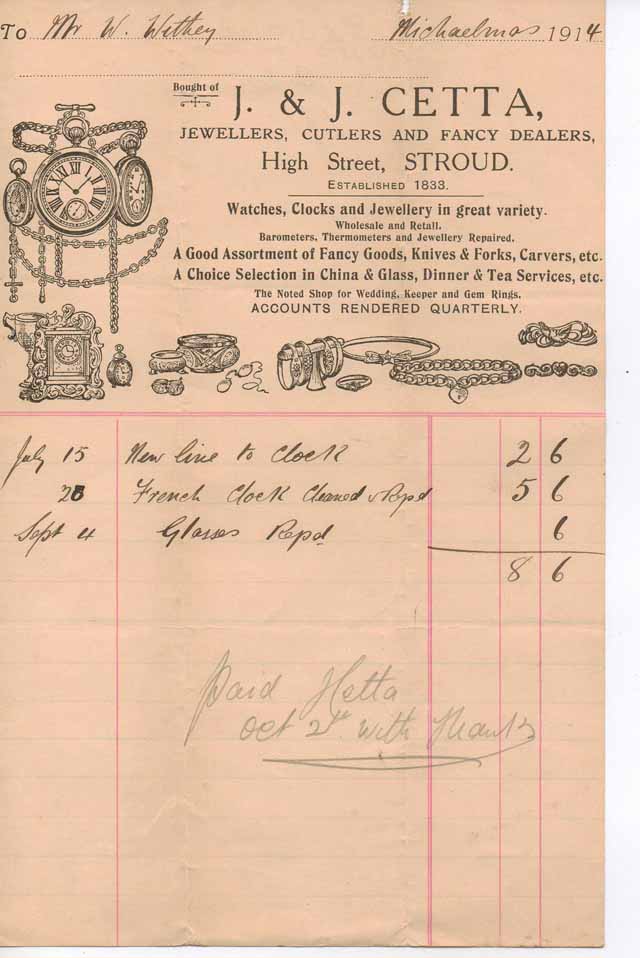 To Mr W. Withey Michaelmas 1914
Bought of
J. & J. CETTA,
JEWELLERS, CUTLERS AND FANCY DEALERS,
High Street, STROUD.
ESTABLISHED 1833.
Watches, Clocks and Jewellery in great variety.
Wholesale and Retail.
Barometers, Thermometers and Jewellery Repaired.
A Good Assortment of Fancy Goods, Knives & Forks, Carvers, etc.
A Choice Selection in China & Glass, Dinner & Tea Services, etc.
The Noted Shop for Wedding, Keeper and Gem Rings.
ACCOUNTS RENDERED QUARTERLY.
July 15 New line to Clock 2 6
28 French Clock Cleaned & Repd 5 6
Sept 4 Glasses Repd 6
8 6
Paid
Oct 2nd with Thanks